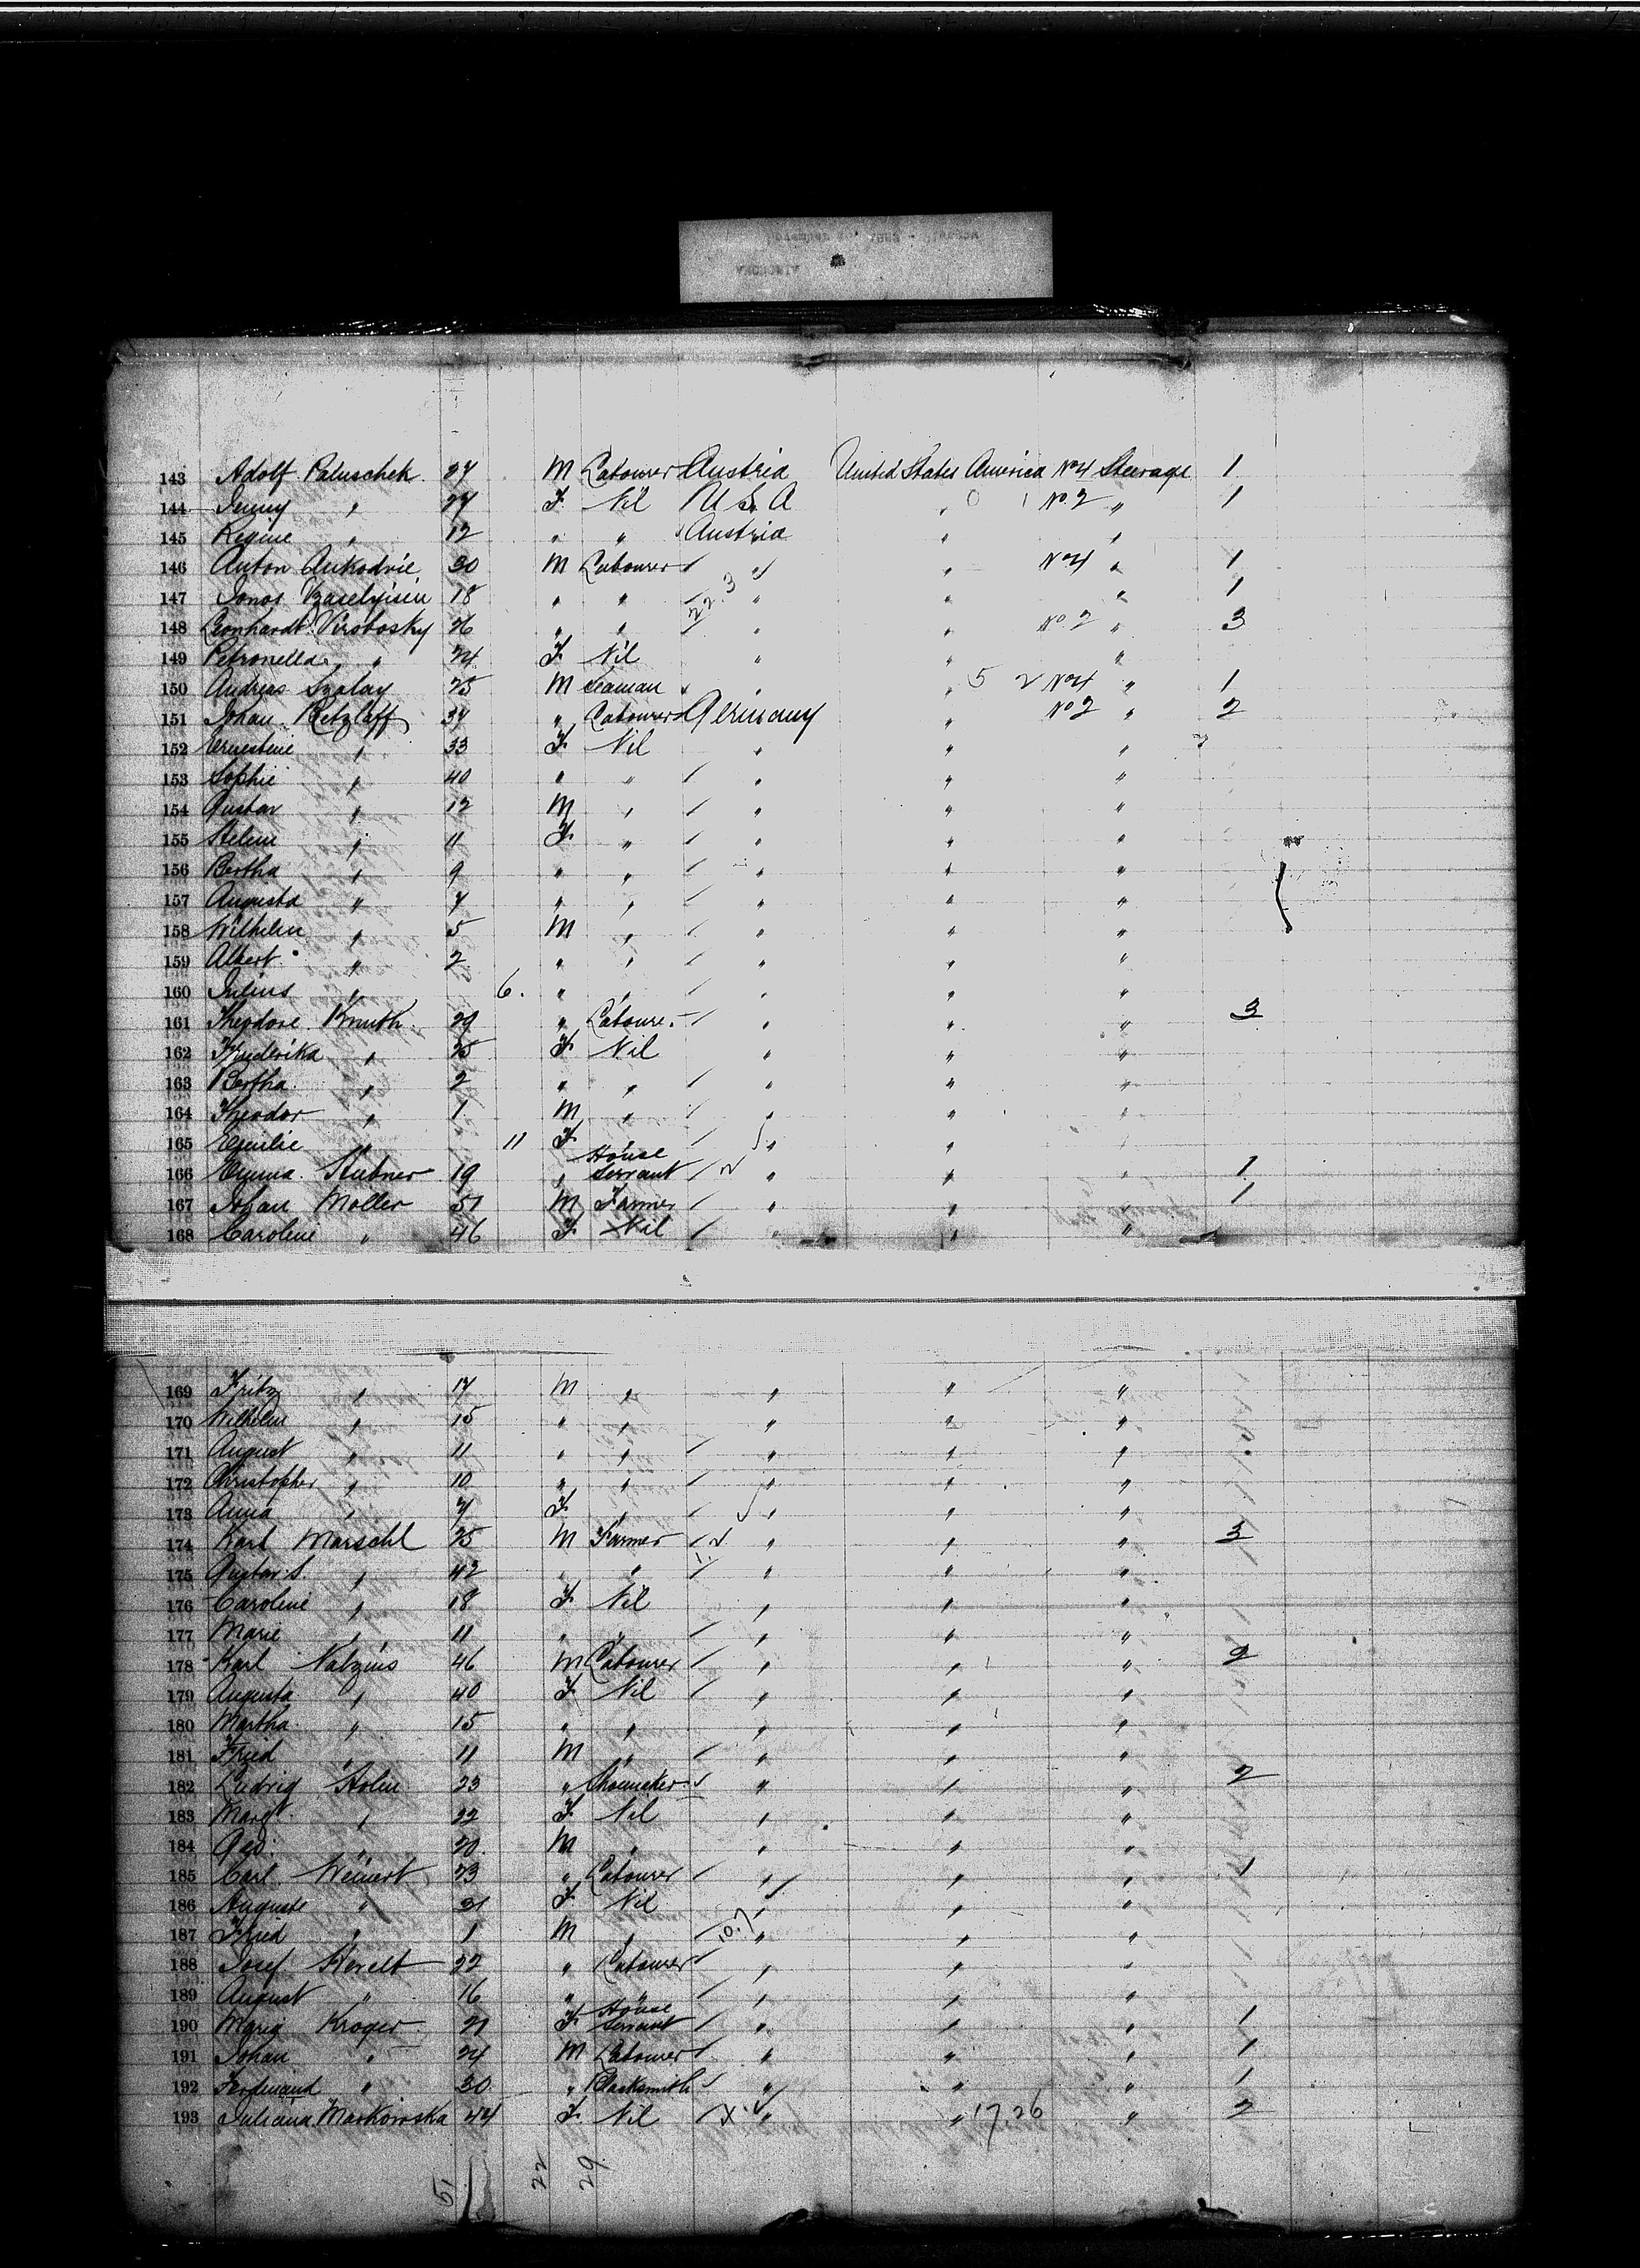 143 Adolf Paluschek 27 M Labourer Austria United States America No 4 Steerage 1
144 Jenny " 27 F. Nil U S. A " 0 1 No. 2 " 1
145 Regine " 12 " " Austria " "
146 Anton 30 M Labourer " " No 4 " 1
147 Janos 18 " " " " " 1
148 Leonhardt Virobosky 26 " " " " No. 2 " 3
149 Petronella " 24 F Nil " " "
150 Andreas Szalay 25 M Seaman " " 5 2 No 4 " 1
151 Johan Retzlaff 34 " Labourer Germany " No 2 " 2
152 Ernestine " 33 F. Nil " " "
153 Sophie " 40 " " " " "
154 Gustav " 12 M " " " "
155 Helene " 11 F. " " " "
156 Bertha " 9 " " " " "
157 Augusta " 7 " " " " "
158 Wilhelm " 5 M " " " "
159 Albert " 2 " " " " "
160 Julius " 6. " " " " "
161 Theodore Knuth 29 " Labourer " " " 3
162 Frederika " 25 F Nil " " "
163 Bertha " 2 " " " " "
164 Theodor " 1 M " " " "
165 Emilie " 11 F " "
166 Emma Hubner 19 " House Servant " " " 1
167 Johan Moller 51 M Farmer " " " 1
168 Caroline " 46 F. Nil " " "
169 Fritz " 17 M " " " "
170 Wilhelm " 15 " " " " "
171 August " 11 " " " " "
172 Christopher " 10 " " " " "
173 Anna " 7 F " " " "
174 Karl Marschl 25 M Farmer " " " 3
175 Gustav S. " 42 " " " " "
176 Caroline " 18 F Nil " " "
177 Marie " 11 " " " " "
178 Karl Natzius 46 M Labourer " " " 2
179 Augusta " 40 F Nil " " "
180 Martha " 15 " " " " "
181 Fried " 11 M " " " "
182 Ludvig Holm 23 " Shoemaker " " " 2
183 Margt. " 22 F. Nil " " "
184 Geo. " 20 M " " " "
185 Carl Weinert 23 " Labourer " " " 1
186 Auguste " 31 F Nil " " "
187 Fried " 1 M " 10.7 " " "
188 Josef 22 " Labourer " " "
189 August " 16 " " " " "
190 Maria Kroger 21 F House Servant " " " 1
191 Johan " 24 M Labourer " " " 1
192 Ferdinand " 30 " Blacksmith " " " 1
193 Juliana Markowska 44 F. Nil X " " 17.26 " 2
51 22 29